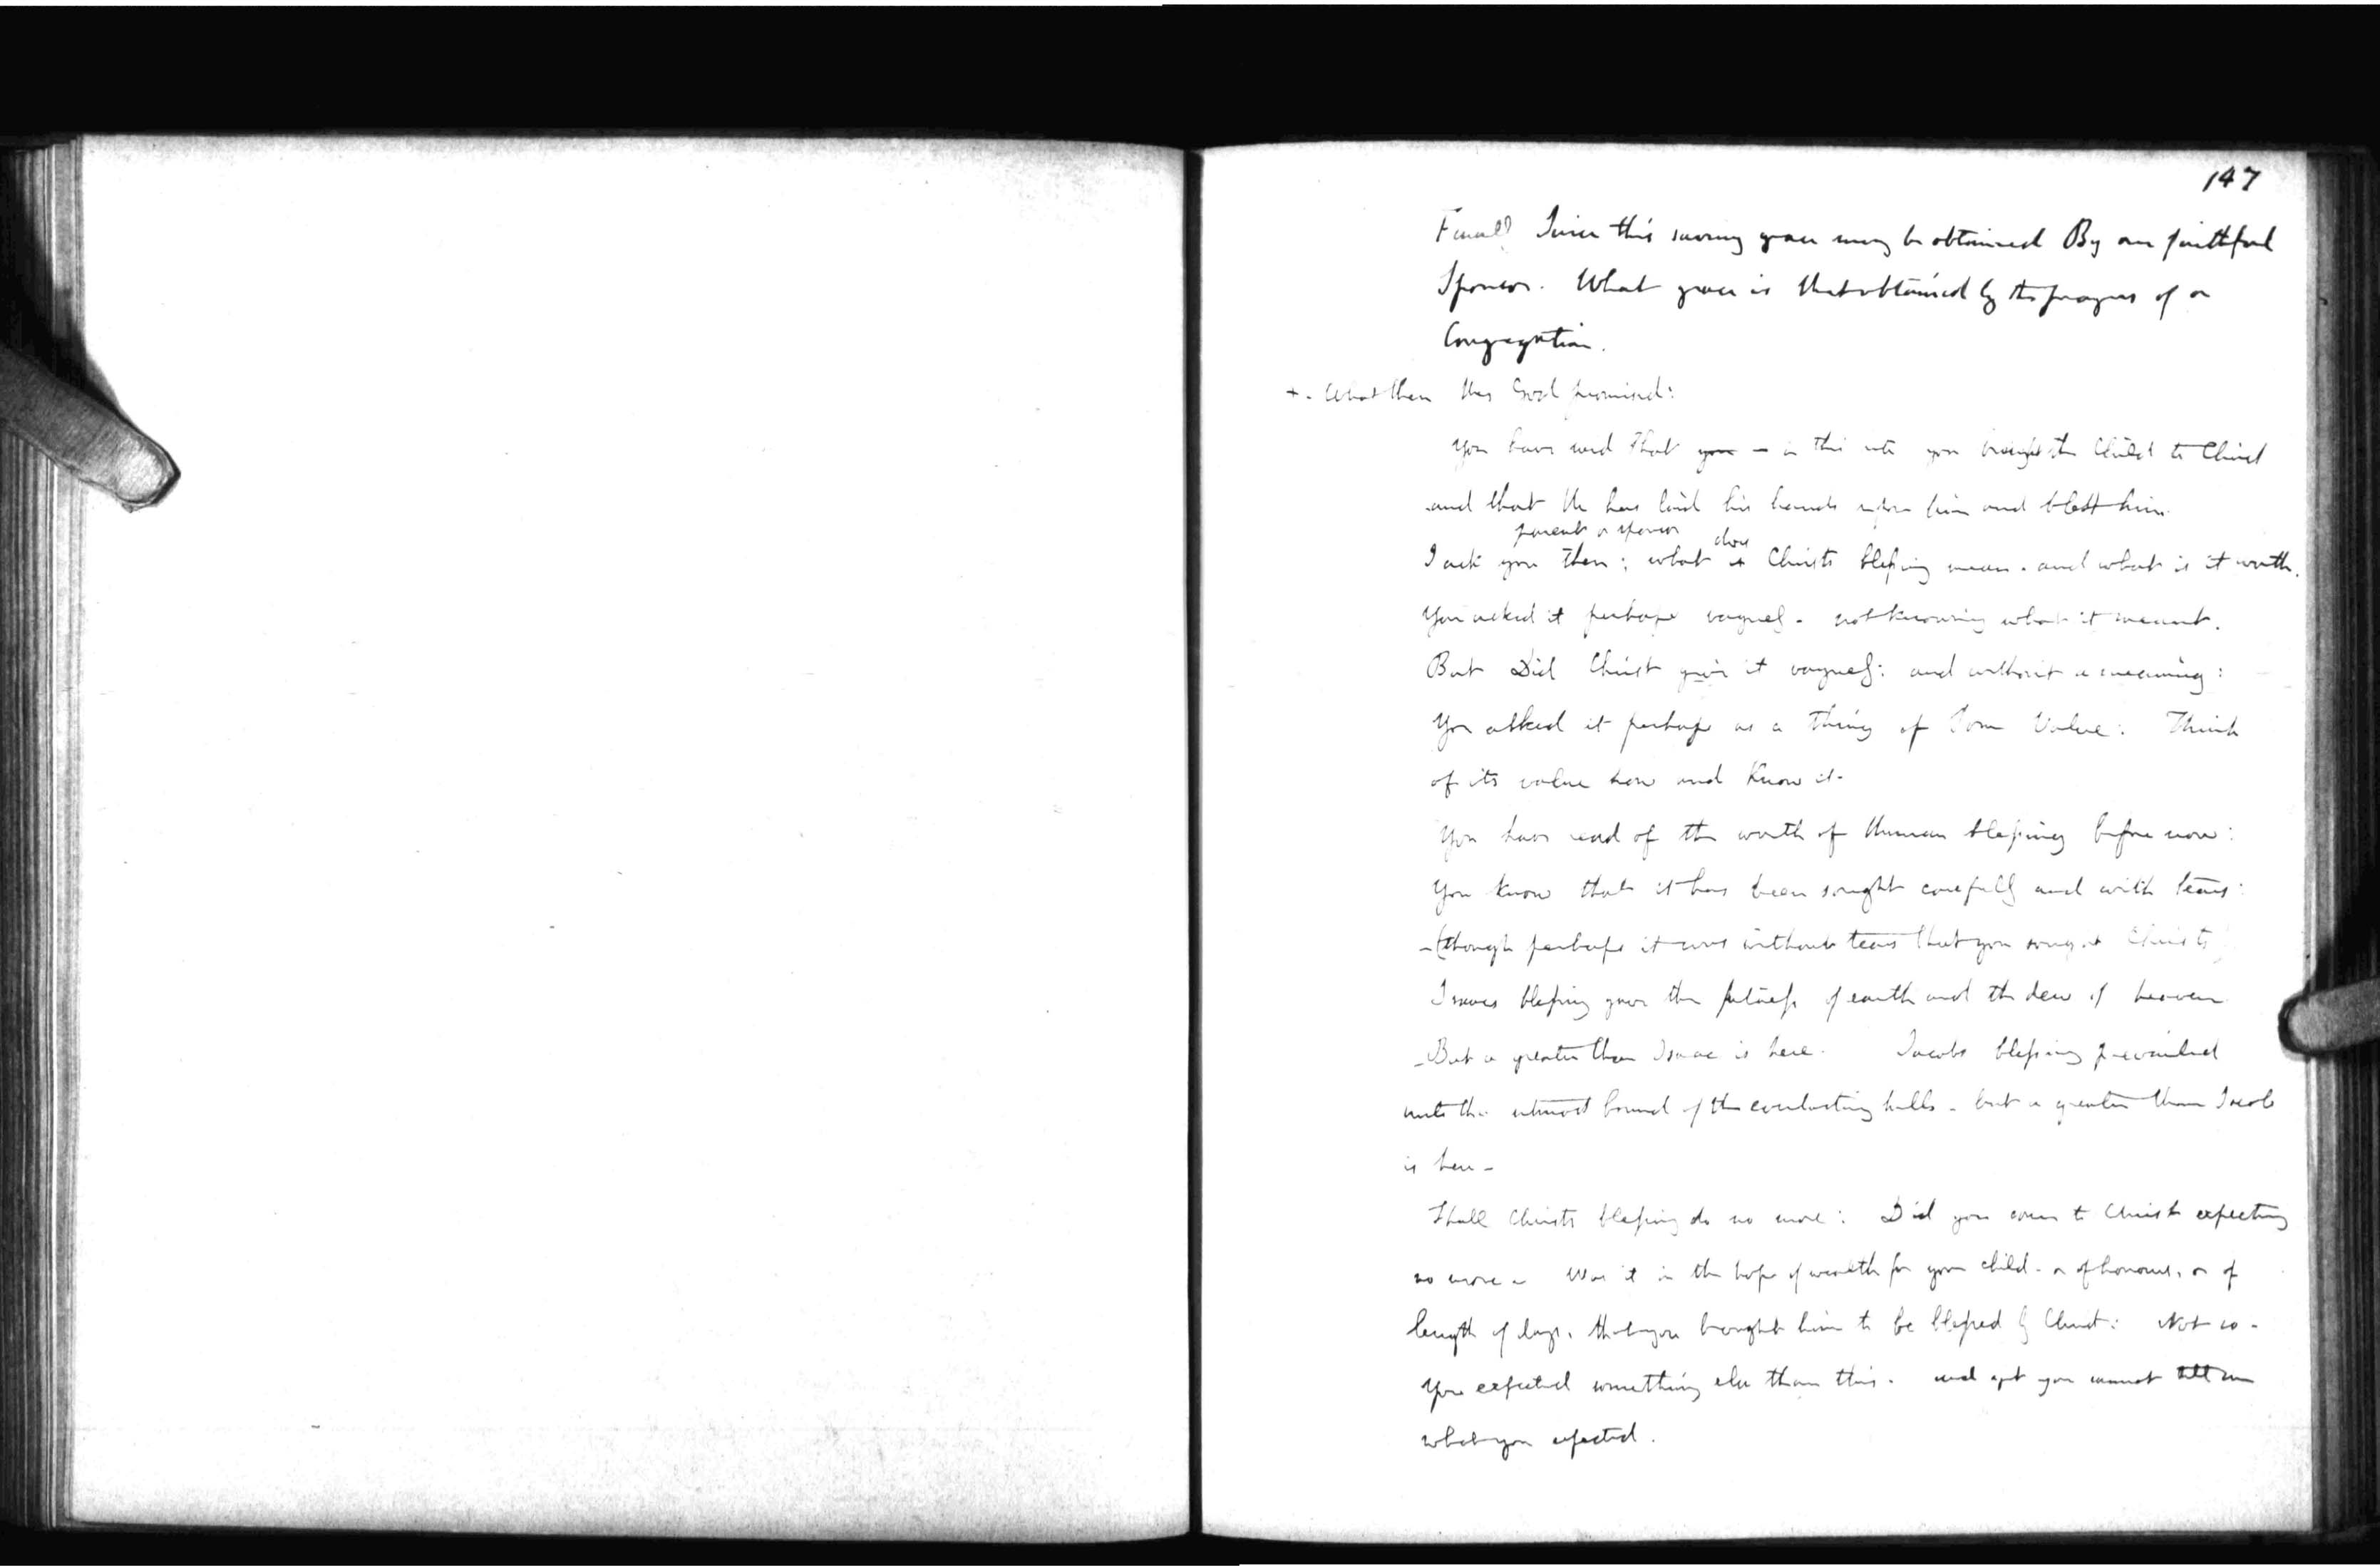 147
Finally Since this saving grace may be obtained By one faithful
Sponsor. What grace is that obtained by the prayers of a
Congregation.
+ . What then Has God promised:
You have said that you – in this rite you brought the Child to Christ
and that He has laid his hands upon him and blest him.
parent or sponsor does
I ask you then; what is Christs blessing mean. and what is it worth.
You asked it perhaps vaguely. not knowing what it meant.
But Did Christ give it vaguely: and without a meaning:
You asked it perhaps as a thing of Value: Think
of its value now and Know it.
You have read of the worth of Human blessing before now:
You Know that it has been sought carefully and with tears:
– (though perhaps it was without tears that you sought Christs)
Isaacs blessing gave the fatness of earth and the dew of heaven
– But a greater than Isaac is here. Jacobs blessing prevailed
unto the utmost bound of the everlasting hills – but a greater than Jacob
is here –
Shall Christs blessing do no more: Did you come to Christ expecting
no more – Was it in the hope of wealth for your child – or of honour, or of
length of days, that you brought him to be blessed by Christ: Not so –
You expected something else than this. and yet you cannot tell me
what you expected.